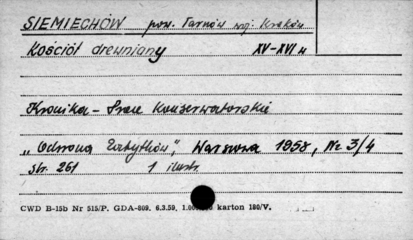 SIEMIECHÓW pow. Tarnów woj. Kraków
Kościół drewniany XV-XVI w
Kronika - Prace Konserwatorskie
„Ochrona Zabytków”, Warszawa 1958, Nr 3/4
str. 261 1 ilustr.
CWD B-15b Nr 515/P. GDA-809. 6.3.59. karton 180/V.